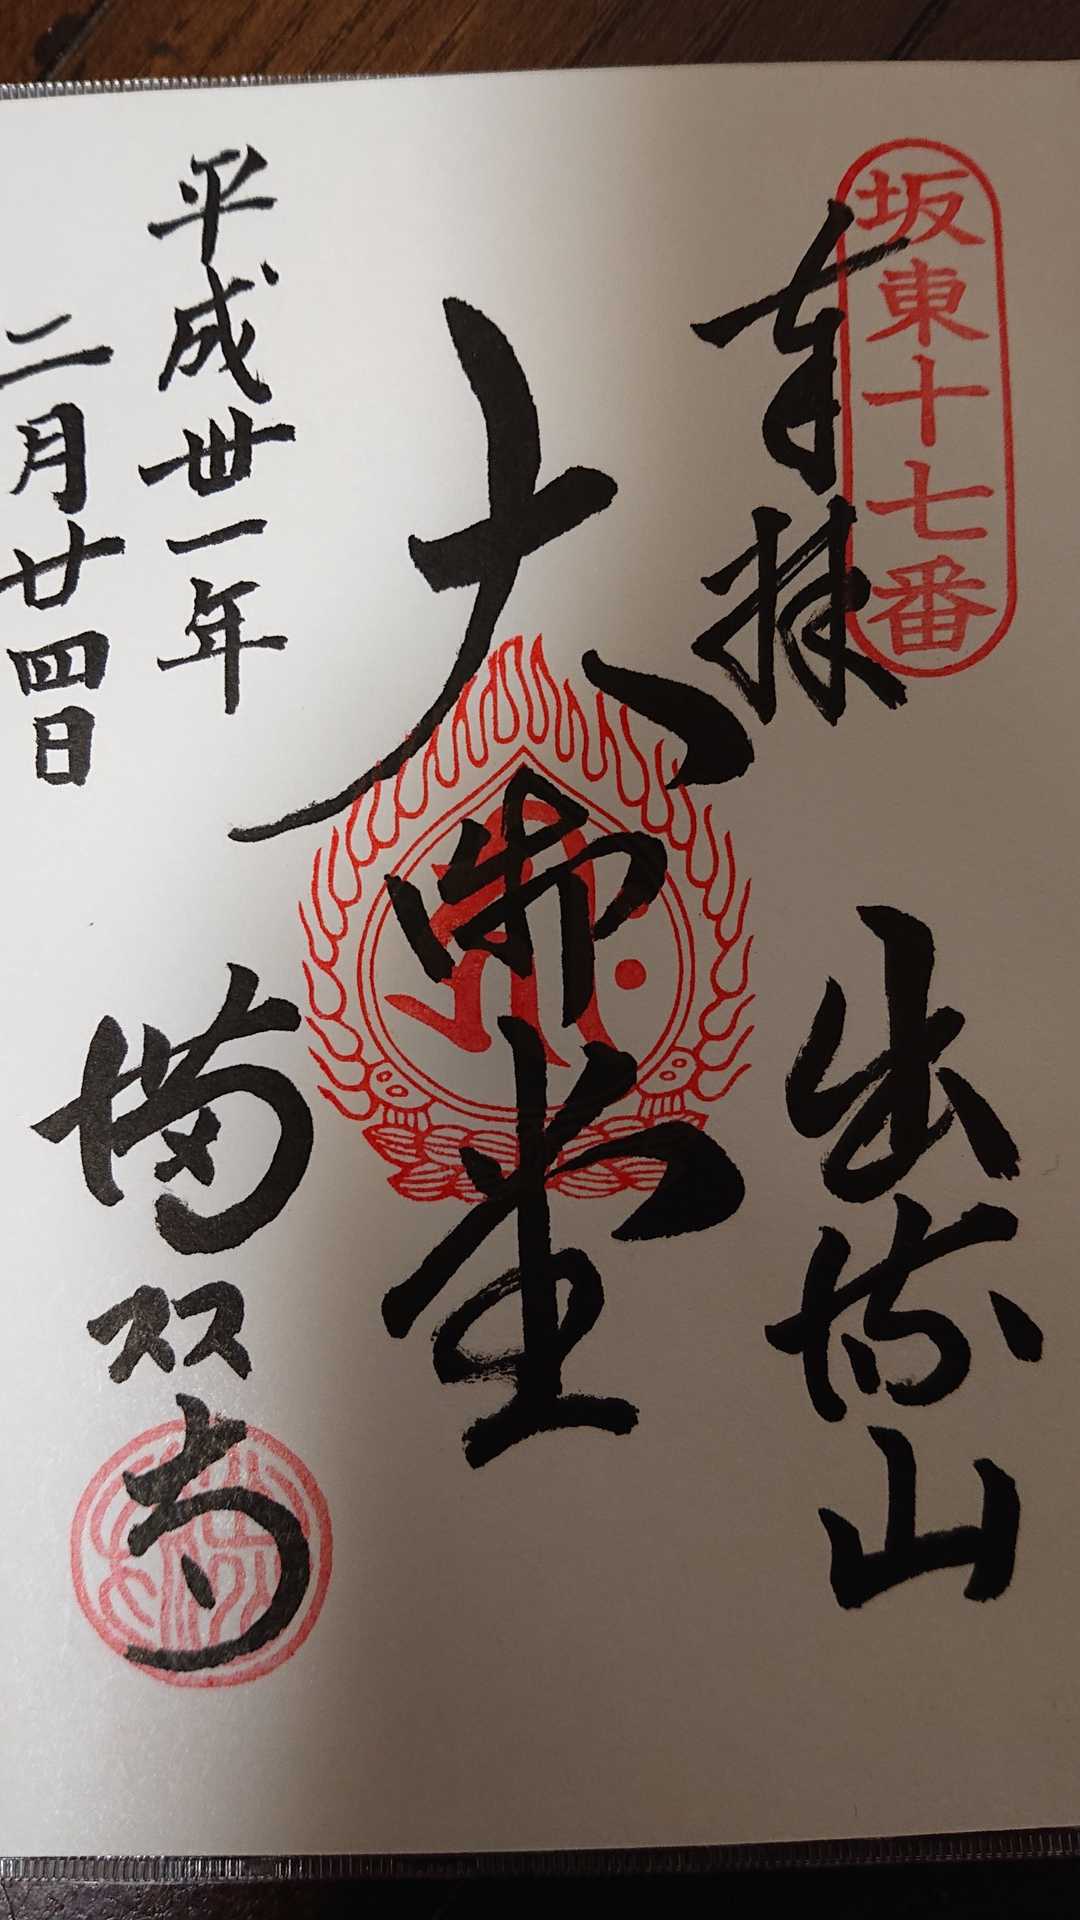 坂東十七番
奉拝
出流山
大御堂
平成卅一年
二月廿四日
満願寺